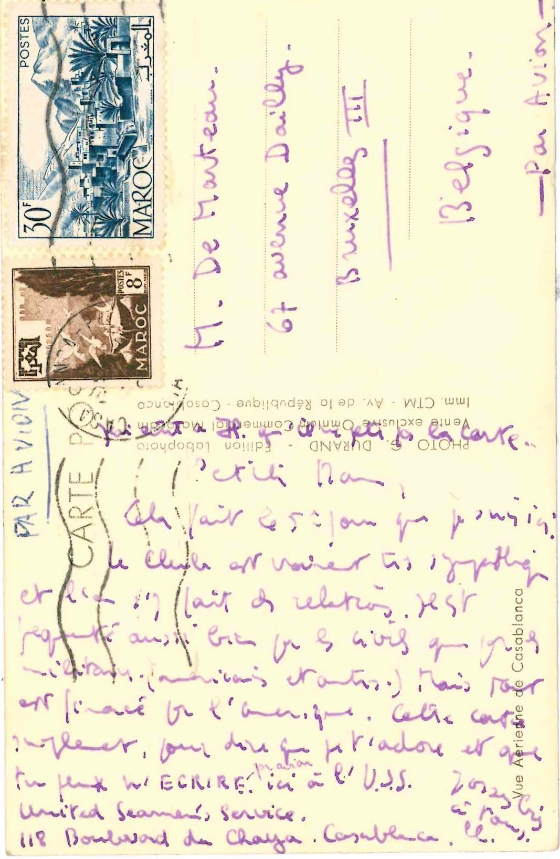 POSTES
30F
MAROC
المغرب
POSTES
8F
MAROC
المغرب
M. De Marteau.
67 avenue Dailly.
Bruxelles III
Belgique.
— Par Avion —
PAR AVION
CARTE P
PHOTO G. DURAND - Édition Labophoto
Vente exclusive Omnium Commercial Marocain
Imm. CTM - Av. de la République - Casablanca
Vue Aérienne de Casablanca
la carte.
Petite Mam,
Cela fait le 5e jour que je suis ici.
Le Club est vraiment très sympathiq
et l'on s'y fait des relations. Il est
fréquenté aussi bien par les civils que par les
militaires (américains et autres.) Mais tout
est financé par l'amérique. Cette carte
simplement, pour dire que je t'adore et que
tu peux M'ECRIRE par avion ici à l'U.S.S.
United Seamen's Service.
118 Boulevard du Chayla. Casablanca.
à tous.